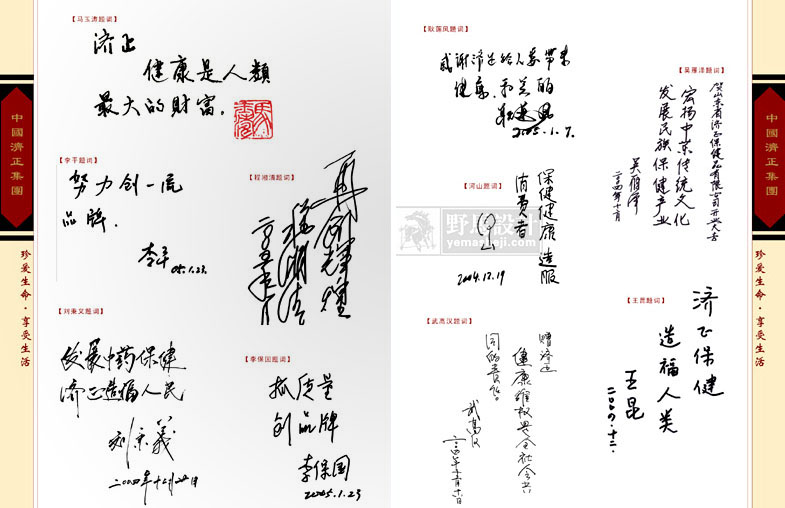 【马玉涛题词】
济正
健康是人類
最大的財富。
【李平题词】
努力创一流
品牌.
李平
05.1.23.
【程湘清题词】
再创辉煌
程湘清
【刘秉义题词】
发展中药保健
济正造福人民
刘秉義
二〇〇四年十二月廿日
【李保田题词】
抓质量
创品牌
李保国
2005.1.23
【耿莲凤题词】
感谢济正给人类带来
健康.和美丽
耿莲凤
2005.1.7.
【吴雁泽题词】
贺山东省济正保健品有限公司开业大吉
宏扬中药传统文化
发展民族保健产业
吴雁泽
二〇〇四年十月
【河山题词】
保健健康造服
消费者
2004.12.19
【武高汉题词】
赠济正
健康维权是全社会共
同的责任
武高汉
【王昆题词】
济正保健
造福人类
王昆
二〇〇四.十二.
中國濟正集團
珍爱生命·享受生活
中國濟正集團
珍爱生命·享受生活
野馬設計
yemasheji.com